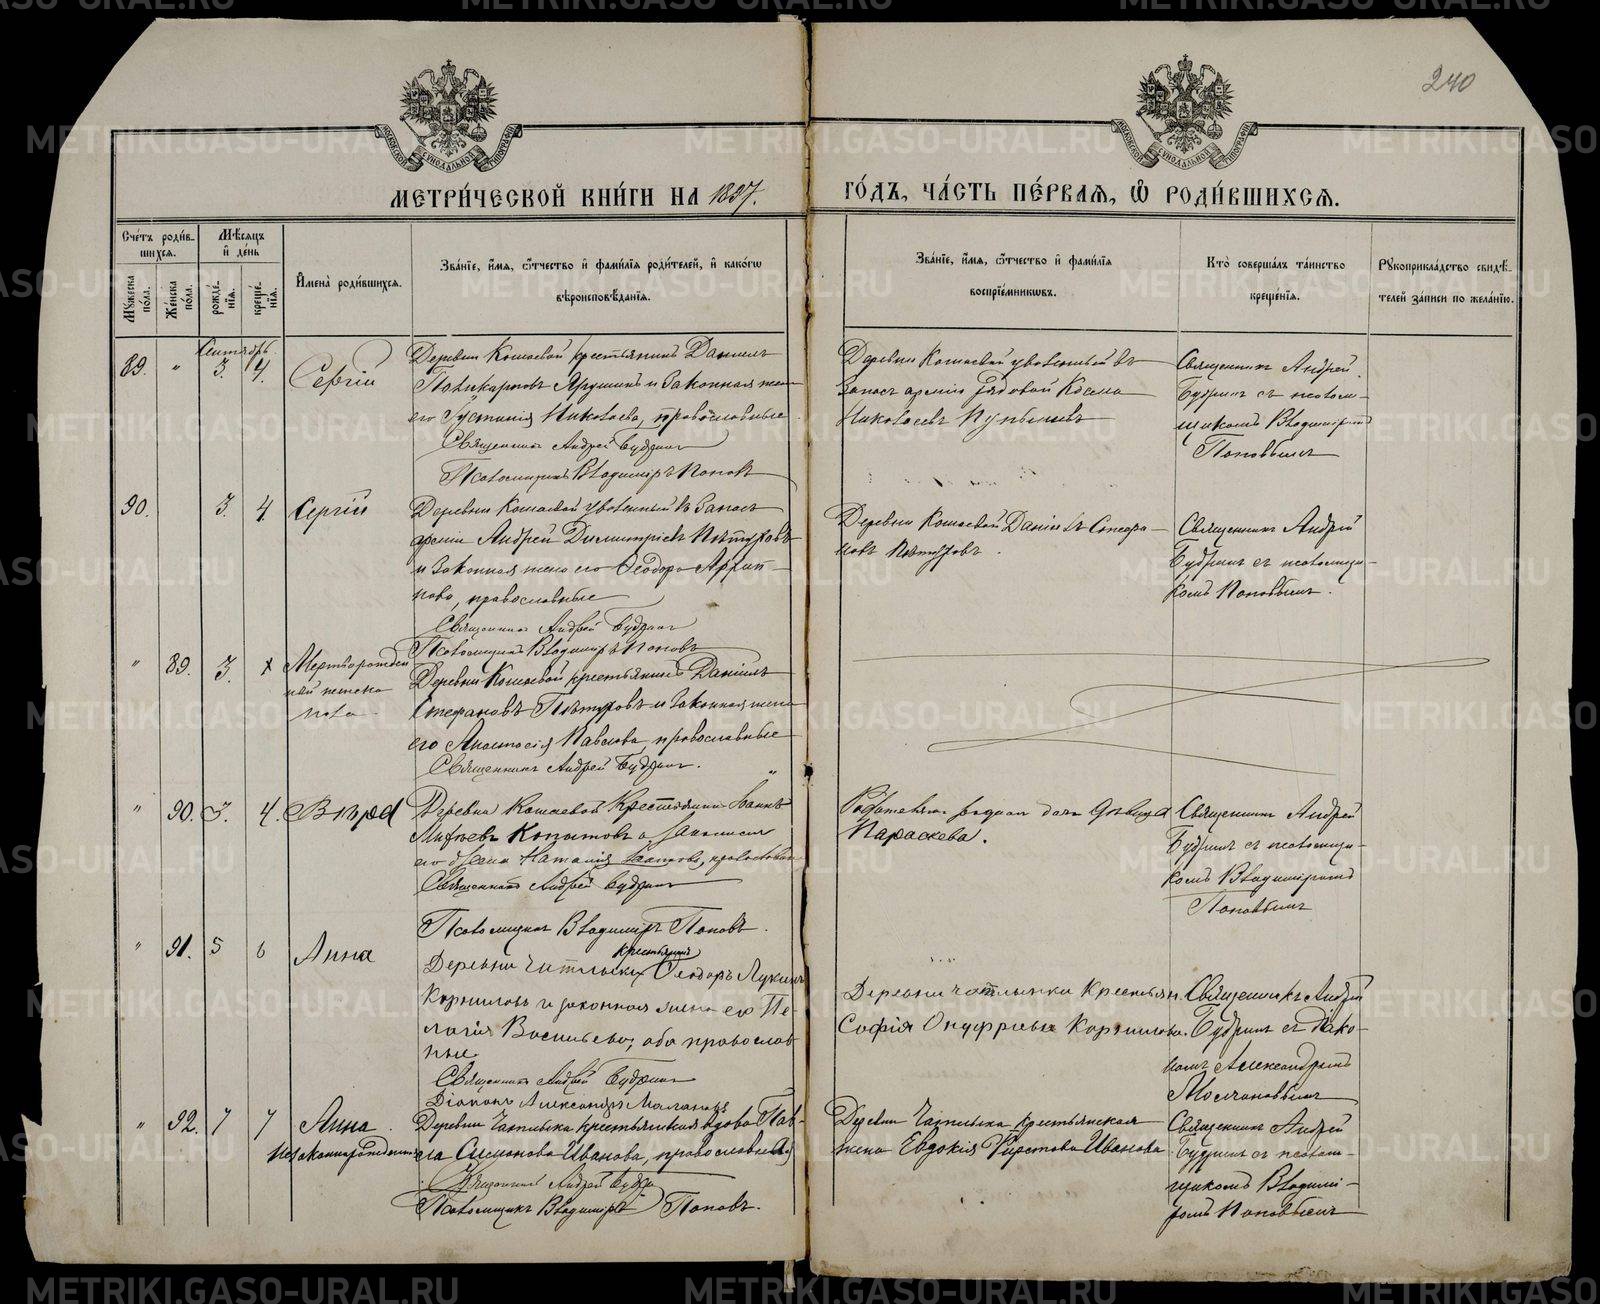 240
МОСКОВСКОЙ СѴНОДАЛЬНОЙ ТИПОГРАФІИ
МОСКОВСКОЙ СѴНОДАЛЬНОЙ ТИПОГРАФІИ
МЕТРИ́ЧЕСКОЙ КНИ́ГИ НА 1897. ГО́ДЪ, ЧА́СТЬ ПЕ́РВАЯ, Ѡ҆ РОДИ́ВШИХСЯ.
Сче́тъ роди́в-
шихся.
Мѣ́сяцъ
и҆ де́нь
Муже́ска по́ла.
Же́нска по́ла.
рожде́-
нїя.
креще́-
нїя.
И҆мена̀ роди́вшихся.
Зва́нїе, и҆́мя, ѻ҆́тчество и҆ фами́лїя роди́телей, и҆ како́гѡ
вѣроисповѣ́данїя.
Зва́нїе, и҆́мя, ѻ҆́тчество и҆ фами́лїя
воспрїе́мниковъ.
Кто̀ соверша́лъ та́инство
креще́нїя.
Рукоприкла́дство свидѣ́-
телей за́писи по жела́нїю.
Сентябрь
89. " 3. 4. Сергій
Деревни Кошаевой крестьянинъ Даніилъ
Поликарповъ Ярушинъ и законная жена
его Іустинія Николаева, православные
Священникъ Андрей Будринъ
Псаломщикъ Владиміръ Поповъ
Деревни Кошаевой уволенный въ
запасъ арміи рядовой Косма
Николаевъ
Священникъ Андрей
Будринъ съ псалом-
щикомъ Владиміромъ
Поповымъ
90. 3. 4. Сергій
Деревни Кошаевой уволенный въ запасъ
арміи Андрей Димитріевъ Пѣтуховъ
и законная жена его Ѳеодора
православные
Священникъ Андрей Будринъ
Псаломщикъ Владиміръ Поповъ
Деревни Кошаевой Даніилъ Стефа-
новъ Пѣтуховъ.
Священникъ Андрей
Будринъ съ псаломщи-
комъ Поповымъ.
" 89. 3. х Мертворожден
ный женска
пола
Деревни Кошаевой крестьянинъ Даніилъ
Стефановъ Пѣтуховъ и законная жена
его Анастасія Павлова, православные
Священникъ Андрей Будринъ.
" 90. 3. 4. Вѣра
Деревни Кошаевой Крестьянинъ Іоаннъ
Копытовъ и законная
его жена Наталія православные
Священникъ Андрей Будринъ
Псаломщикъ Владиміръ Поповъ.
дочь дѣвица
Параскева.
Священникъ Андрей
Будринъ съ псаломщи-
комъ Владиміромъ
Поповымъ
" 91. 5 6 Анна
крестьянинъ
Деревни Чатлыкъ Ѳеодоръ Лукинъ
Корниловъ и законная жена его Пе-
лагія Васильева, оба православ
ные
Священникъ Андрей Будринъ
Діаконъ Александръ
Деревни Чатлыка Крестьян.
Софія Онуфріева Корнилова.
Священникъ Андрей
Будринъ съ діако-
номъ Александромъ
" 92. 7 7 Анна
незаконнорожденная
Деревни Чатлыка крестьянская вдова Пав-
ла Симонова Иванова, православная
Священникъ Андрей Будринъ
Псаломщикъ Владиміръ Поповъ.
Деревни Чатлыка крестьянская
жена Евдокія Иванова
Священникъ Андрей
Будринъ съ псалом-
щикомъ Владимі-
ромъ Поповымъ
METRIKI.GASO-URAL.RU